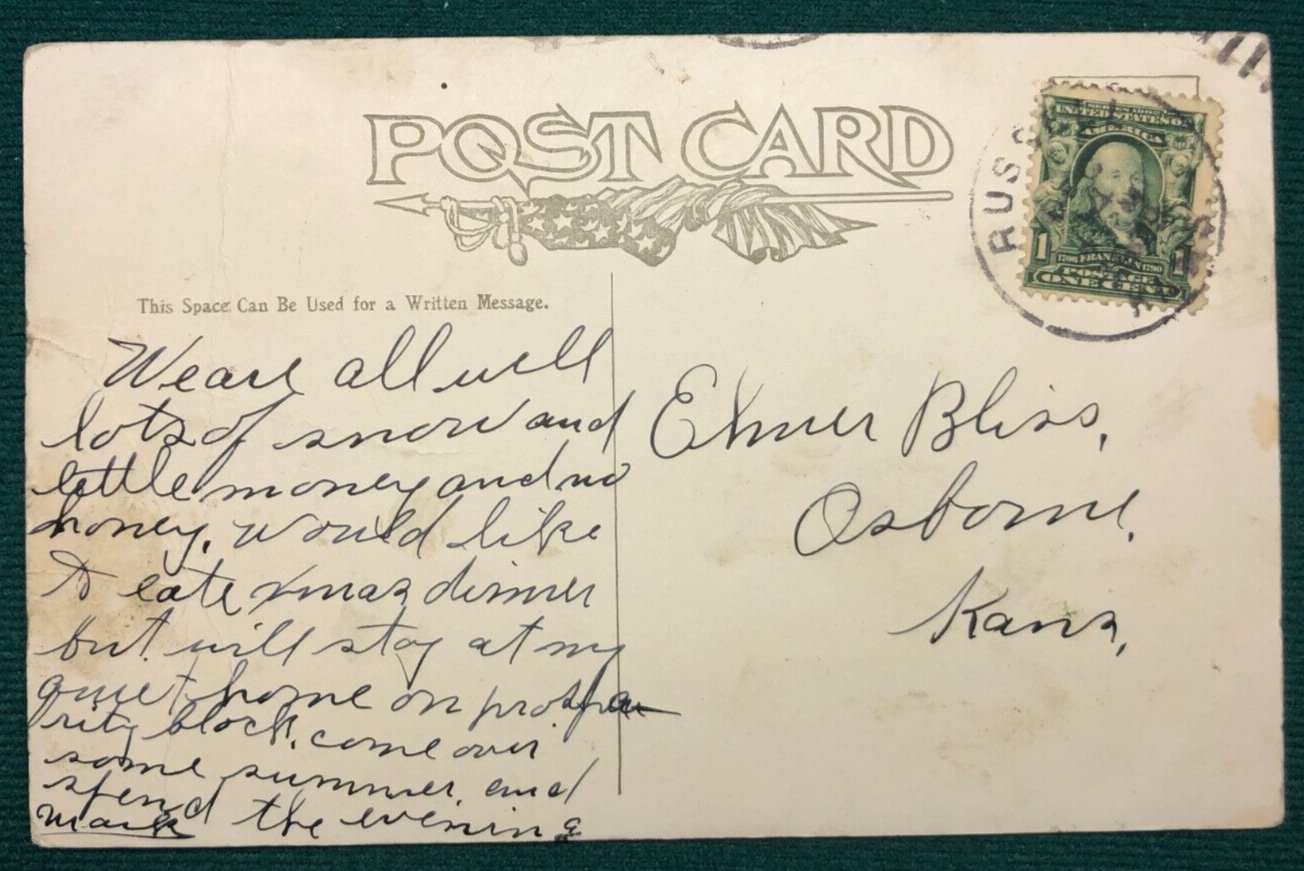 POST CARD
This Space Can Be Used for a Written Message.
We are all well
lots of snow and
little money and no
honey, would like
to eate xmas dinner
but will stay at my
quiet home on prospe-
rity block. come over
some summer. and
spend the evening
Mark
Elmer Bliss,
Osborne,
Kans,
UNITED STATES OF
AMERICA
1
1706 FRANKLIN 1790
POSTAGE
ONE CENT
RUSS